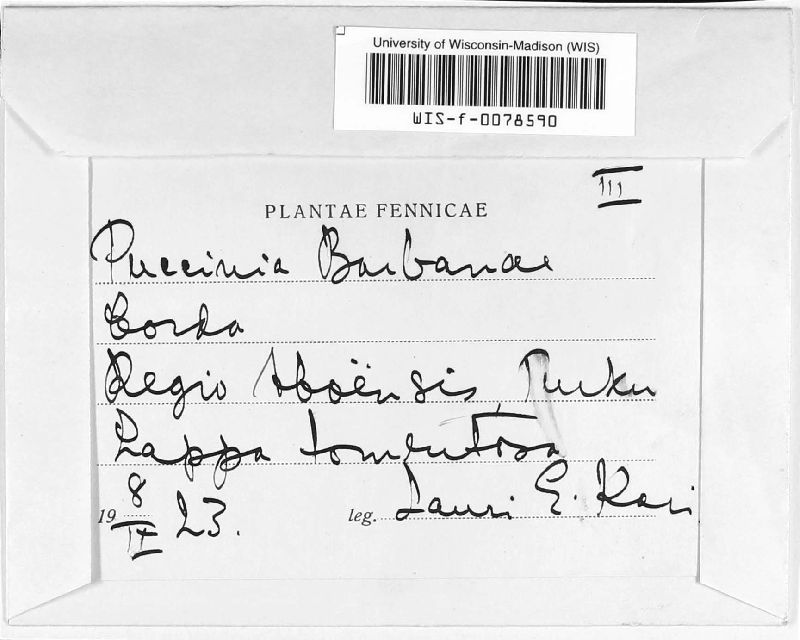 University of Wisconsin-Madison (WIS)
WIS-f-0078590
III
PLANTAE FENNICAE
Puccinia Bardanae
Corda
Regio Aboënsis, Turku
Lappa tomentosa
19 8/IX 23. leg. Lauri E. Kari